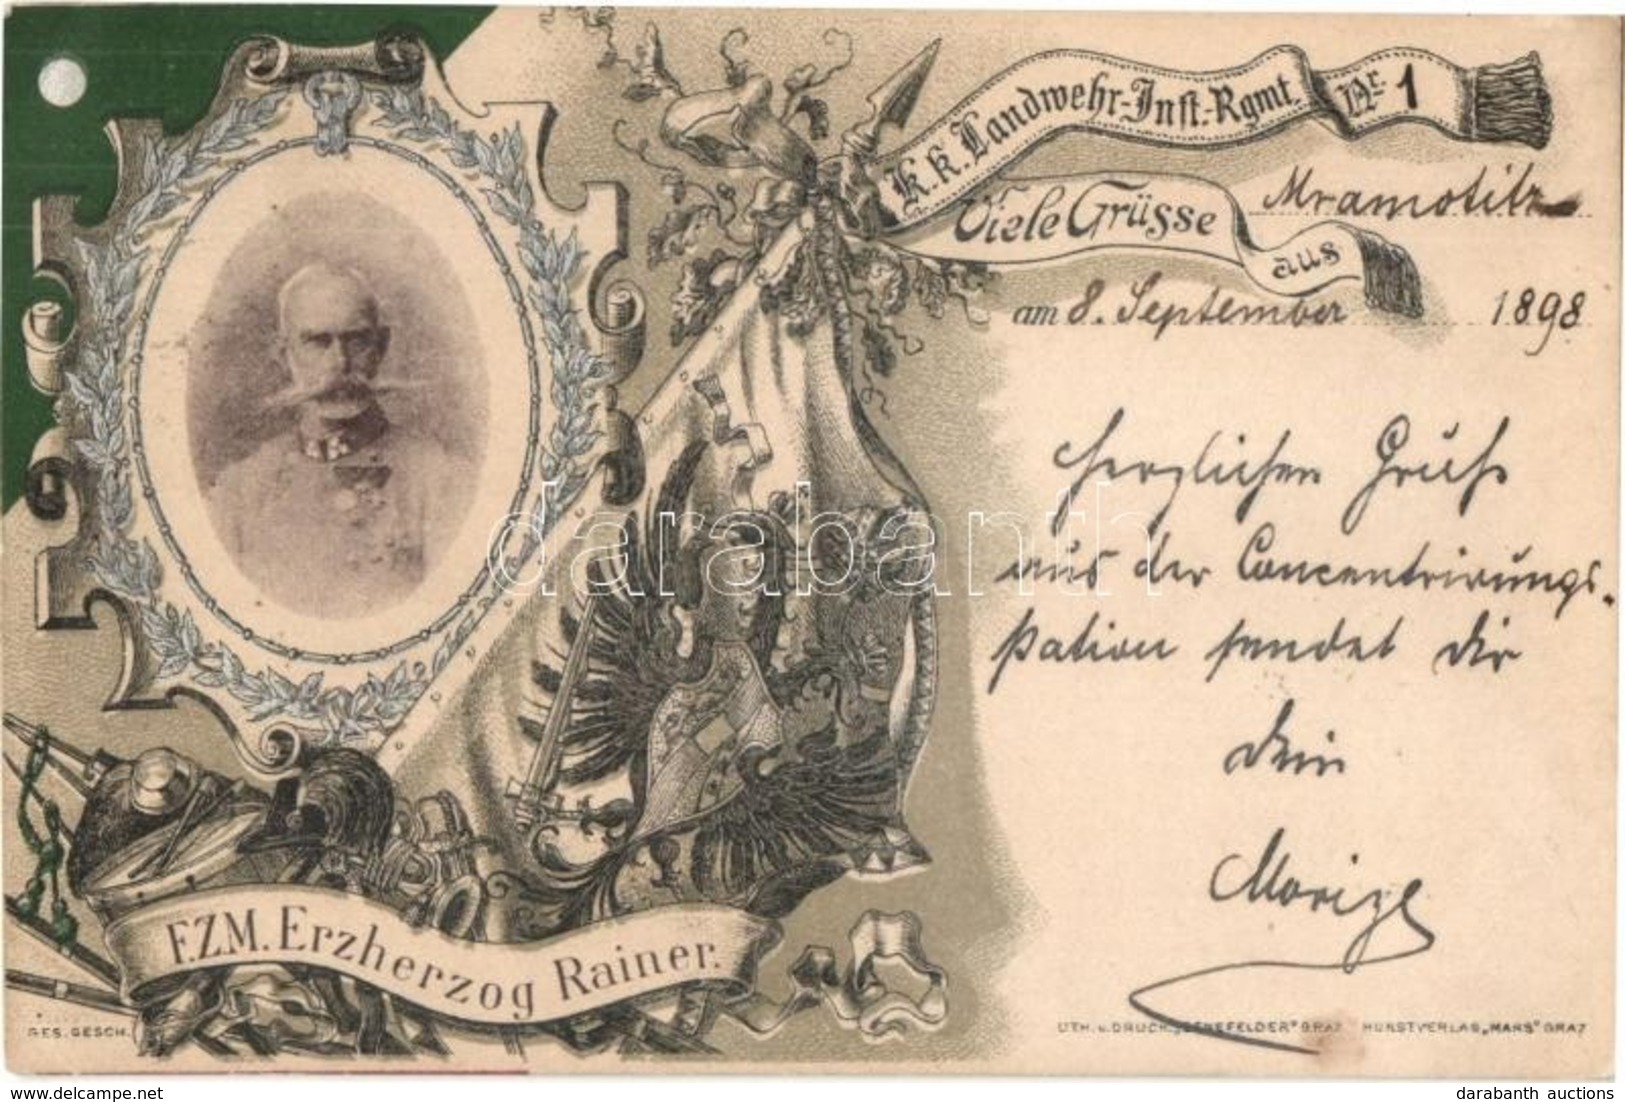 K. k. Landwehr-Inft.-Rgmt. Nr. 1
Viele Grüsse aus Mramotitz
am 8. September 1898
Herzlichen Gruß
aus der Concentrirungs-
station sendet Dir
Dein
Moriz
F.Z.M. Erzherzog Rainer.
RES. GESCH.
LITH. u. DRUCK „SENEFELDER" GRAZ KUNSTVERLAG „MARS" GRAZ
darabanth
darabanth auctions